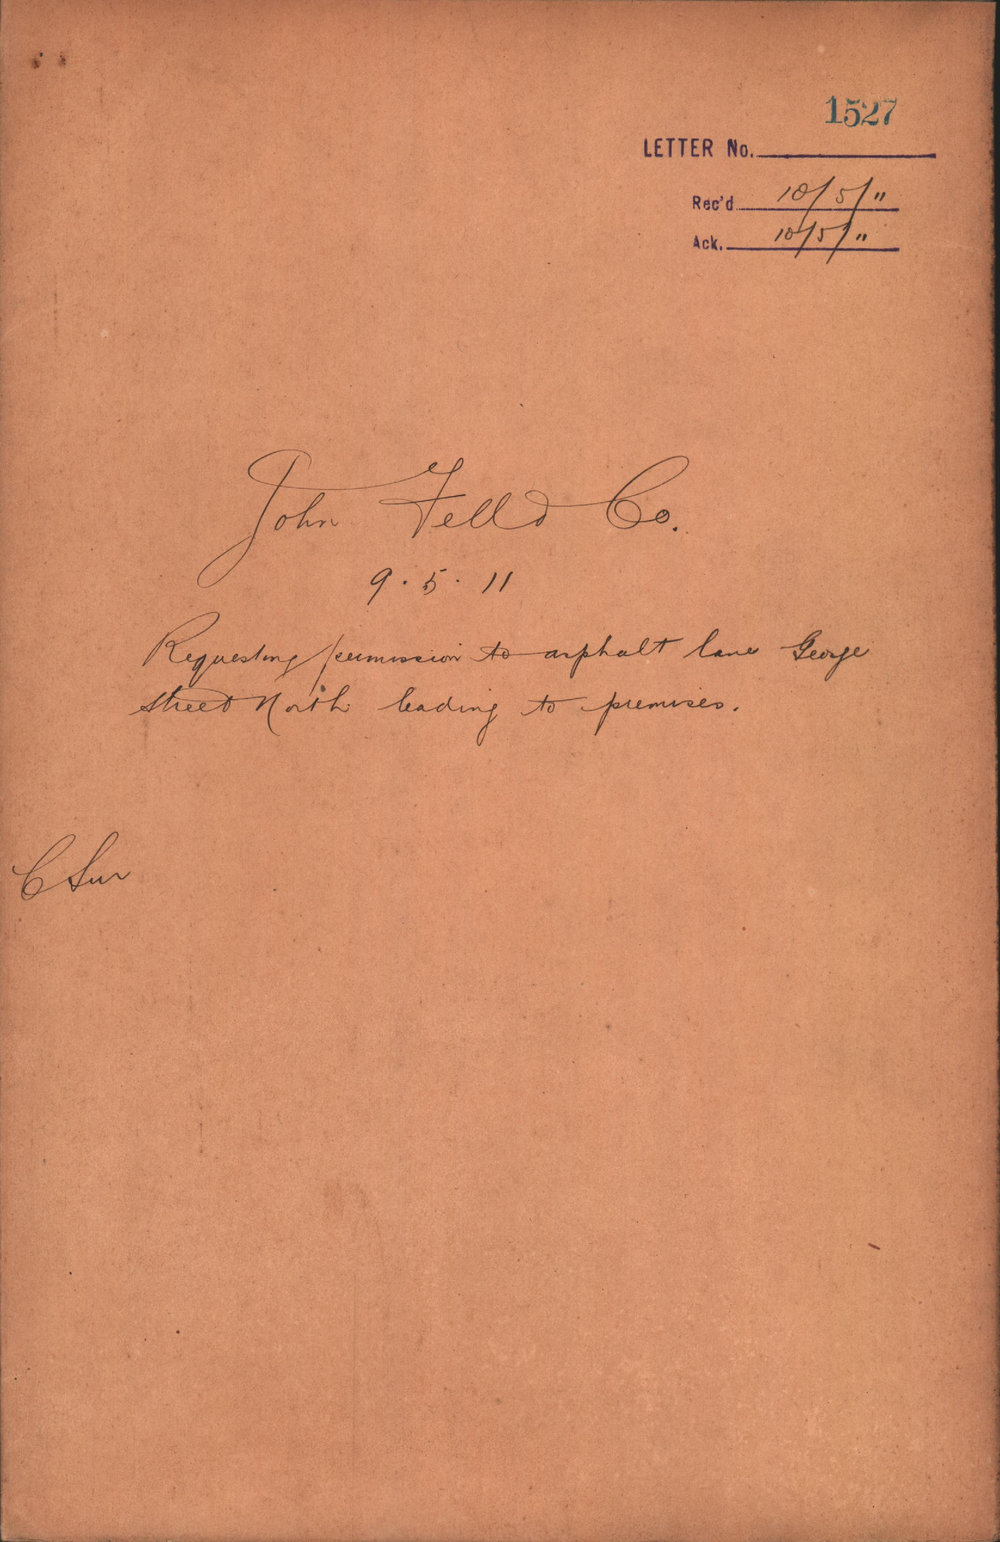 1527
LETTER No.
Rec'd 10/5/11
Ack. 10/5/11
John Fell & Co.
9.5.11
Requesting permission to asphalt lane George
Street North leading to premises.
C Sur